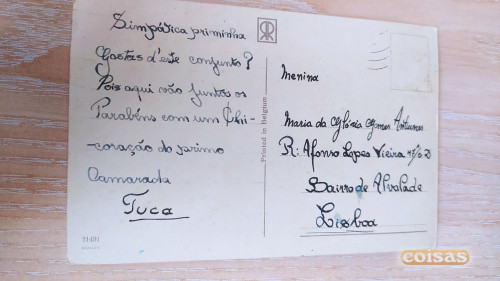 Simpática priminha
Gostas d'este conjunto?
Pois aqui vão juntos os
Parabéns com um Chi-
-coração do primo
Camarada
Tuca
21491
Printed in Belgium
Menina
Maria da Glória Gomes Antunes
R: Afonso Lopes Vieira
Bairro de Alvalade
Lisboa
coisas